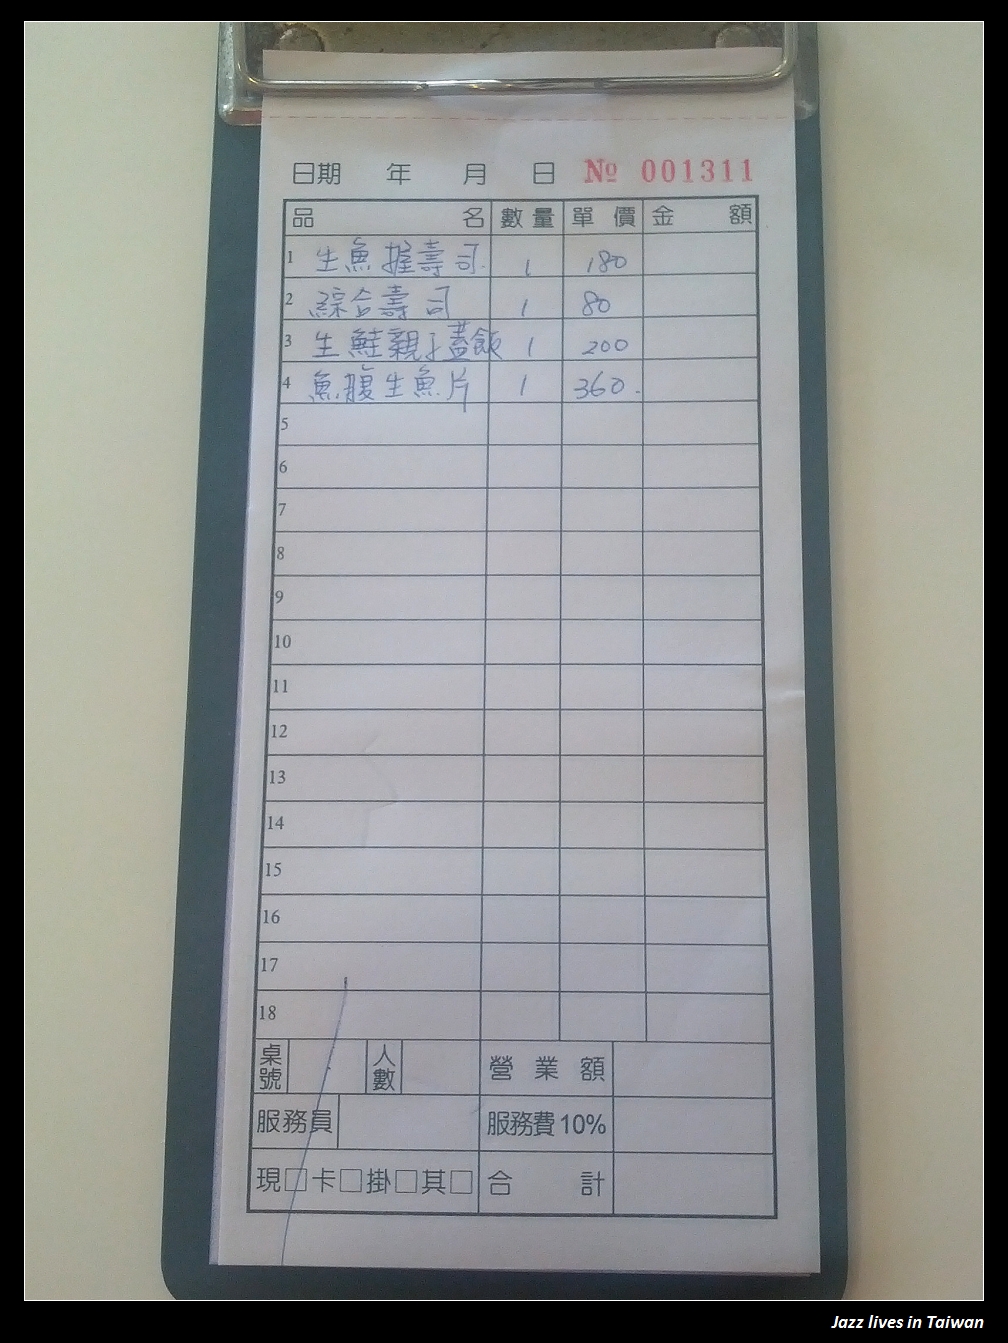 日期 年 月 日 № 001311
品名 數量 單價 金額
1 生魚握壽司 1 180
2 綜合壽司 1 80
3 生鮭親子蓋飯 1 200
4 魚腹生魚片 1 360.
5
6
7
8
9
10
11
12
13
14
15
16
17
18
桌號 人數 營業額
服務員 服務費10%
現□卡□掛□其□ 合計
Jazz lives in Taiwan